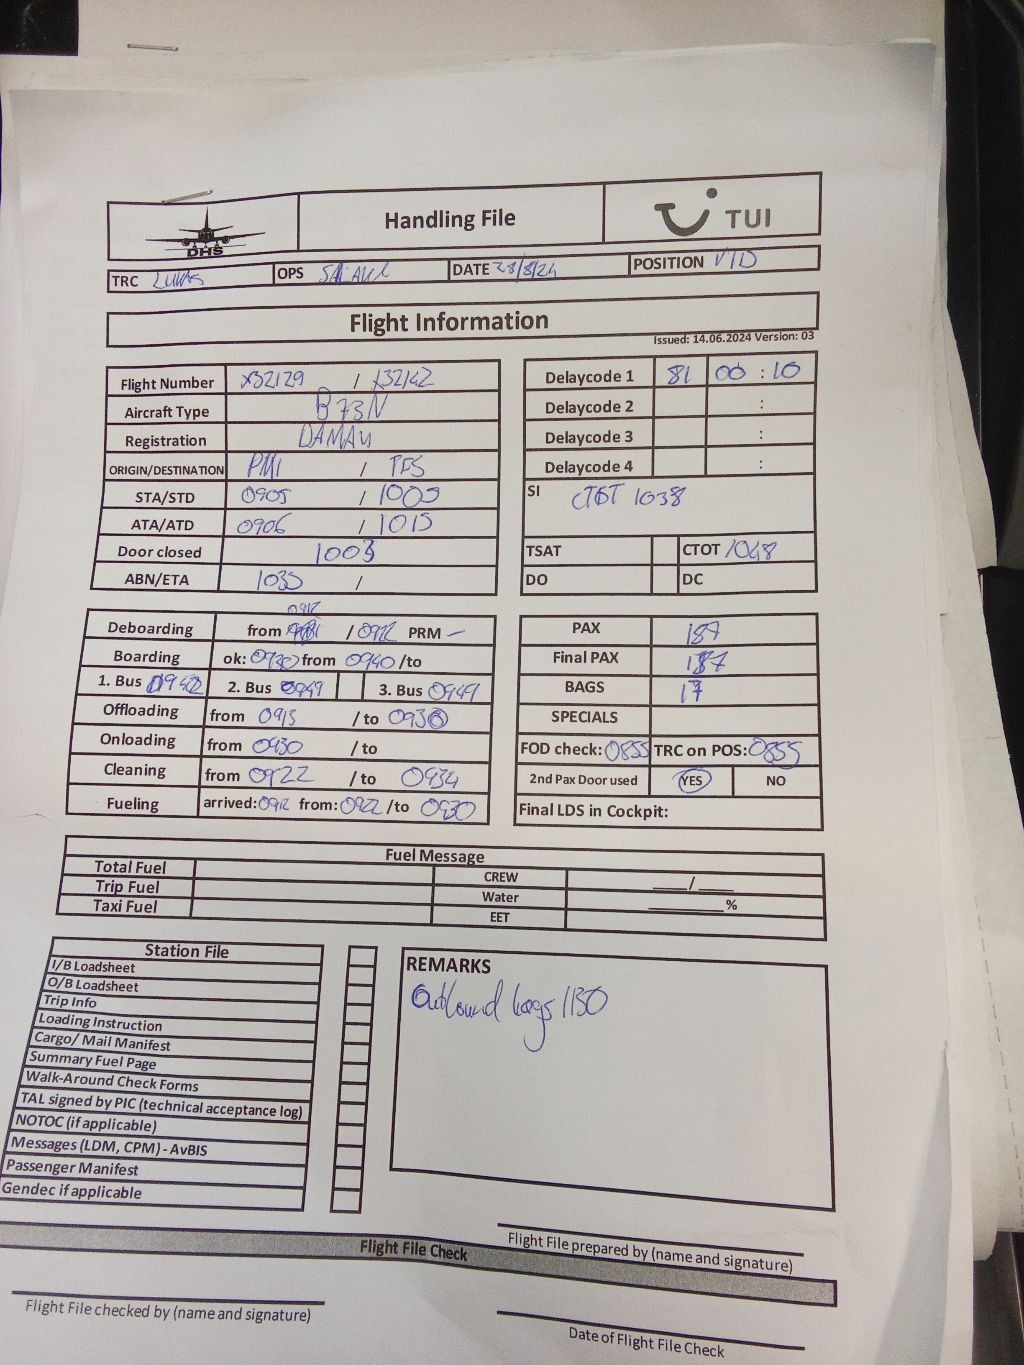 DHS
Handling File
TUI
TRC LUKAS OPS DATE 28/8/24 POSITION V11D
Flight Information
Issued: 14.06.2024 Version: 03
Flight Number X32129 / X32142
Aircraft Type B73N
Registration DAMAU
ORIGIN/DESTINATION PMI / TFS
STA/STD 0905 / 1005
ATA/ATD 0906 / 1015
Door closed 1003
ABN/ETA 1035 /
Delaycode 1 81 00 : 10
Delaycode 2 :
Delaycode 3 :
Delaycode 4 :
SI CTOT 1038
TSAT CTOT 1048
DO DC
0912
Deboarding from / 0922 PRM –
Boarding ok: 0930 from 0940 /to
1. Bus 0942 2. Bus 0949 3. Bus 0949
Offloading from 0913 / to 0930
Onloading from 0930 / to
Cleaning from 0922 / to 0934
Fueling arrived: 0912 from: 0922 /to 0930
PAX 187
Final PAX 187
BAGS 17
SPECIALS
FOD check: 0855 TRC on POS: 0855
2nd Pax Door used YES NO
Final LDS in Cockpit:
Fuel Message
Total Fuel CREW ____/____
Trip Fuel Water ________%
Taxi Fuel EET
Station File
I/B Loadsheet
O/B Loadsheet
Trip Info
Loading Instruction
Cargo/ Mail Manifest
Summary Fuel Page
Walk-Around Check Forms
TAL signed by PIC (technical acceptance log)
NOTOC (if applicable)
Messages (LDM, CPM) - AvBIS
Passenger Manifest
Gendec if applicable
REMARKS
Outbound bags 1130
Flight File prepared by (name and signature)
Flight File Check
Flight File checked by (name and signature)
Date of Flight File Check